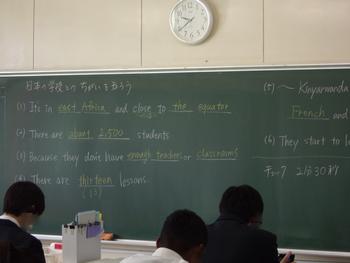 日本の学校とのちがいを言おう
(1) It's in east Africa and close to the equator
(2) There are about 2,500 students
(3) Because they don't have enough teacher or classrooms
(4) There are thirteen lessons
(13)
(5) ～ Kinyarwanda
French and
(6) They start to l
チェック 2分30秒